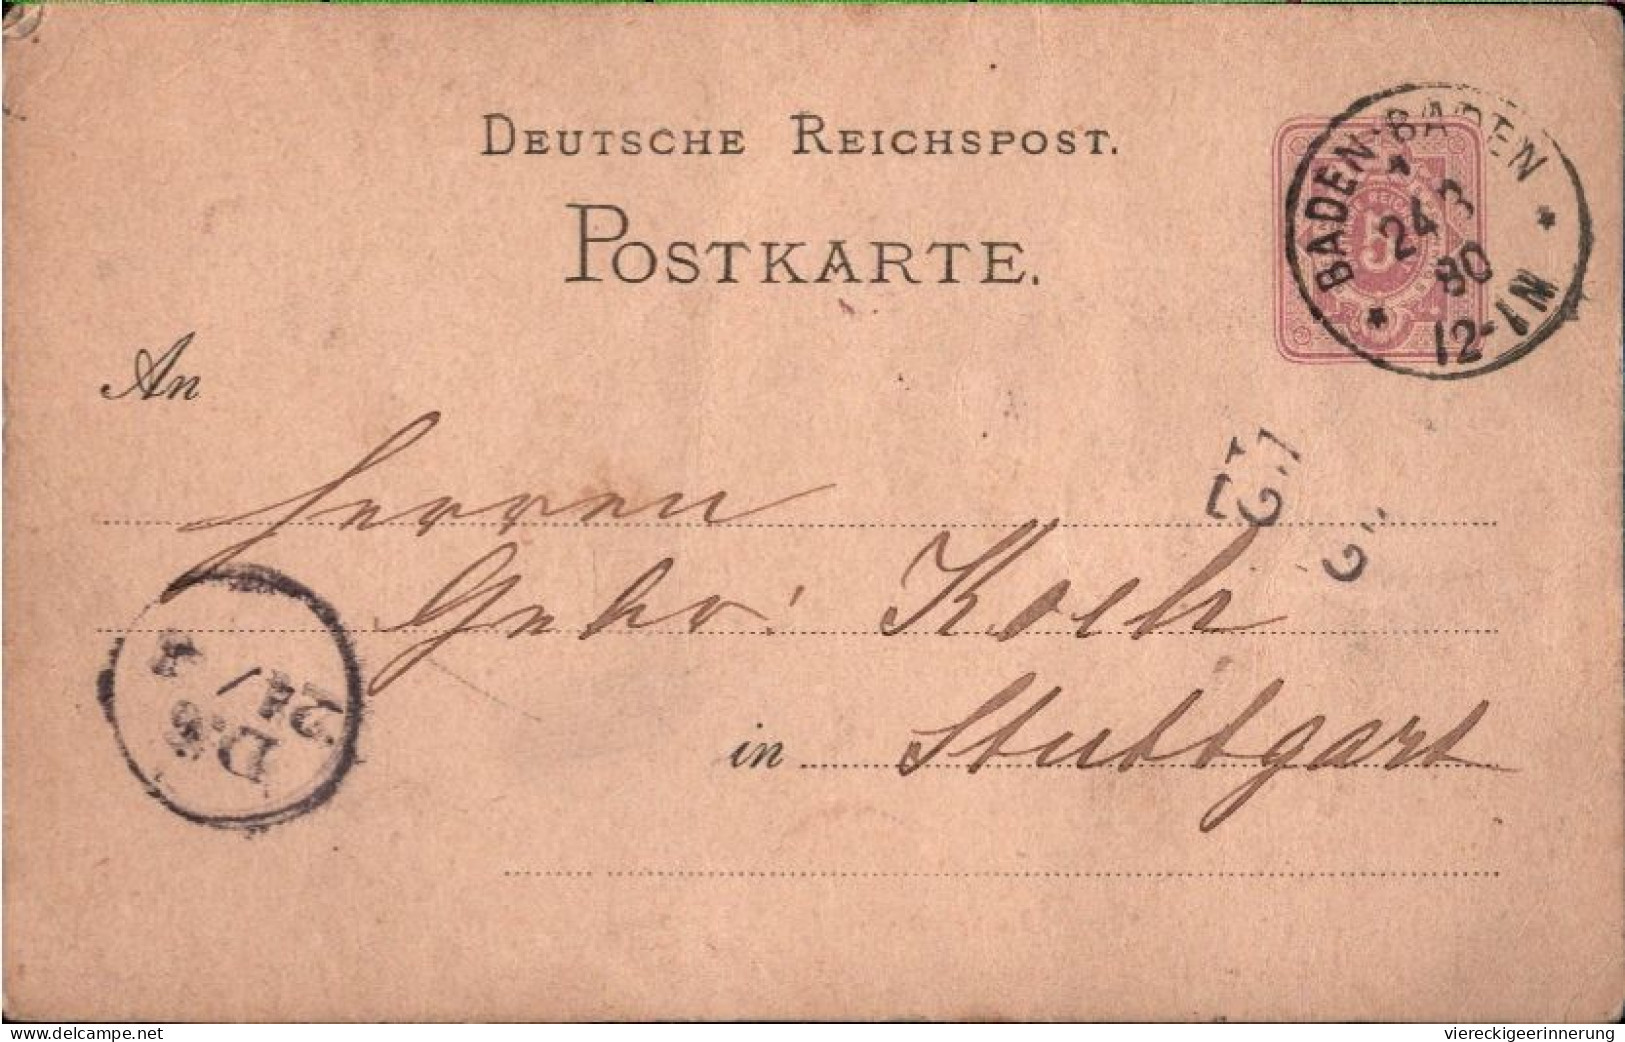 DEUTSCHE REICHSPOST.
POSTKARTE.
BADEN-BADEN
24 8
80
12-1N
5
An
Herren
Gebr: Koch
in Stuttgart
24/8
delcampe.net
viereckigeerinnerung